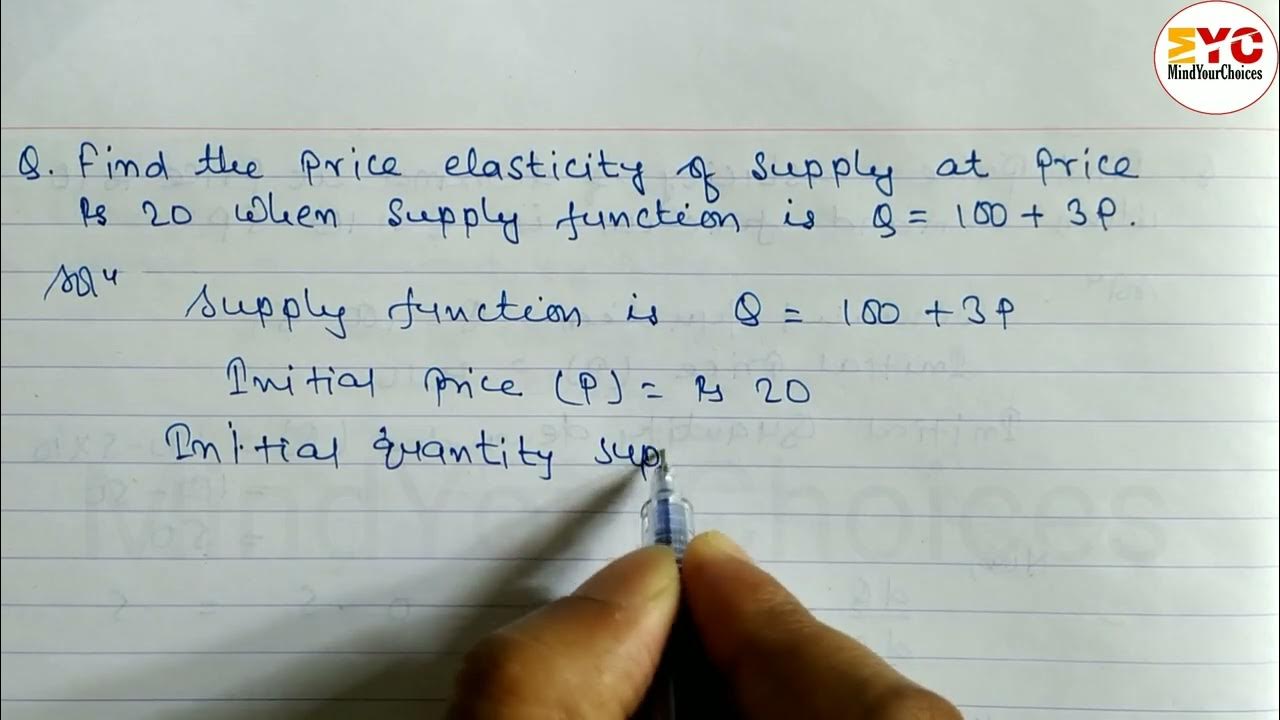 MYC
MindYourChoices
Q. Find the price elasticity of supply at price
Rs 20 when supply function is Q = 100 + 3P.
Solⁿ
Supply function is Q = 100 + 3P
Initial price (P) = Rs 20
Initial quantity sup
MindYourChoices